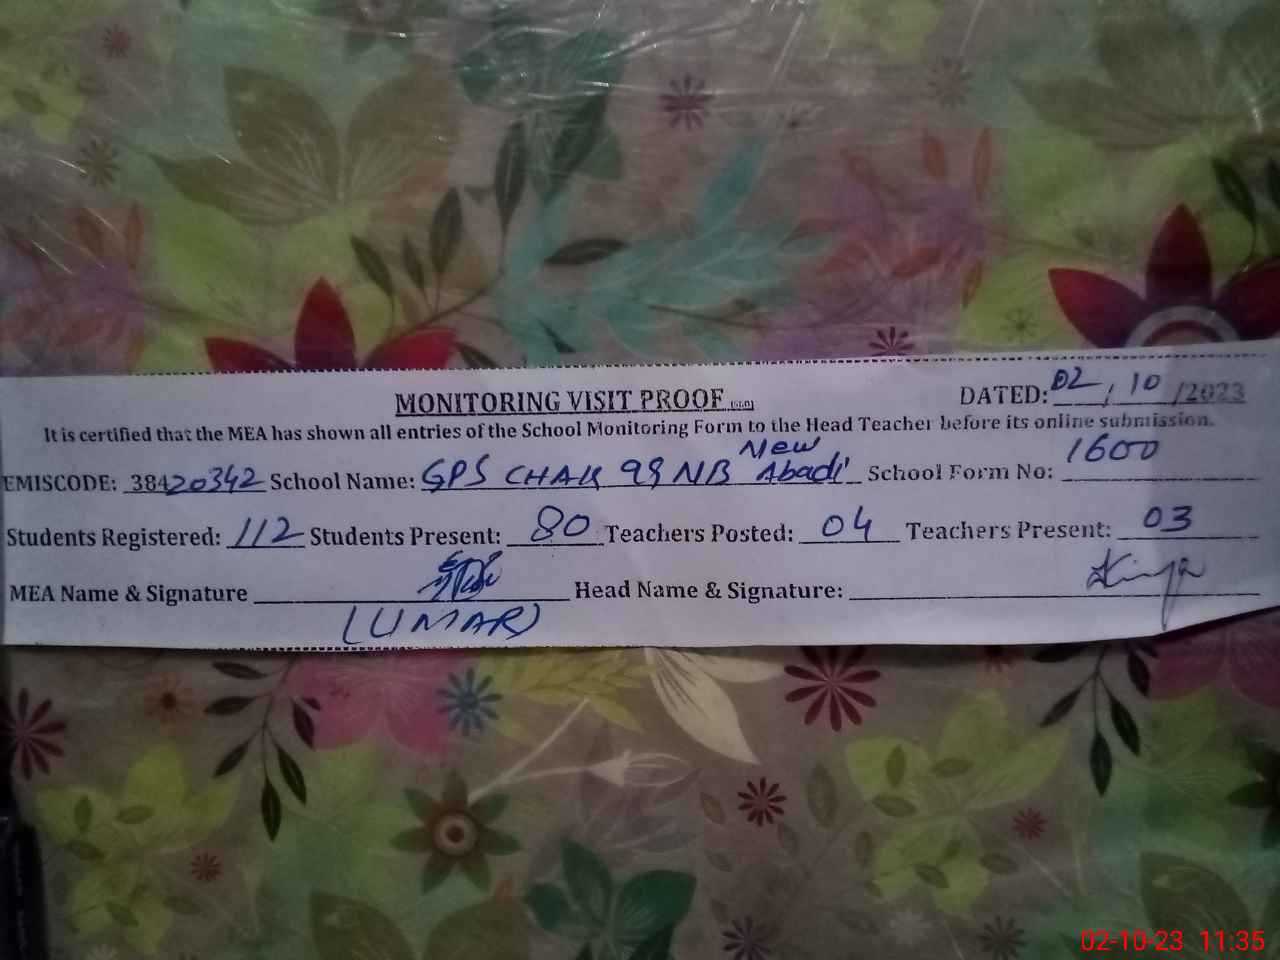 MONITORING VISIT PROOF
DATED: 02/10/2023
It is certified that the MEA has shown all entries of the School Monitoring Form to the Head Teacher before its online submission.
EMISCODE: 38420342 School Name: GPS CHAK 99 NB New Abadi School Form No: 1600
Students Registered: 112 Students Present: 80 Teachers Posted: 04 Teachers Present: 03
MEA Name & Signature Head Name & Signature:
(UMAR)
02-10-23 11:35